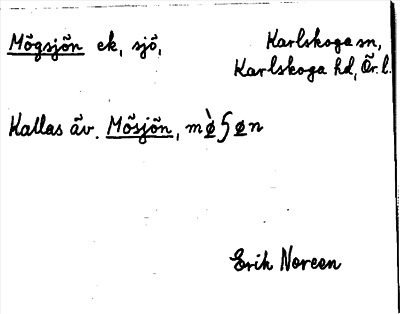 Mögsjön ek, sjö, Karlskoga sn,
Karlskoga hd, Ör. l.
Kallas äv. Mösjön, mø̀ʃøn
Erik Noreen